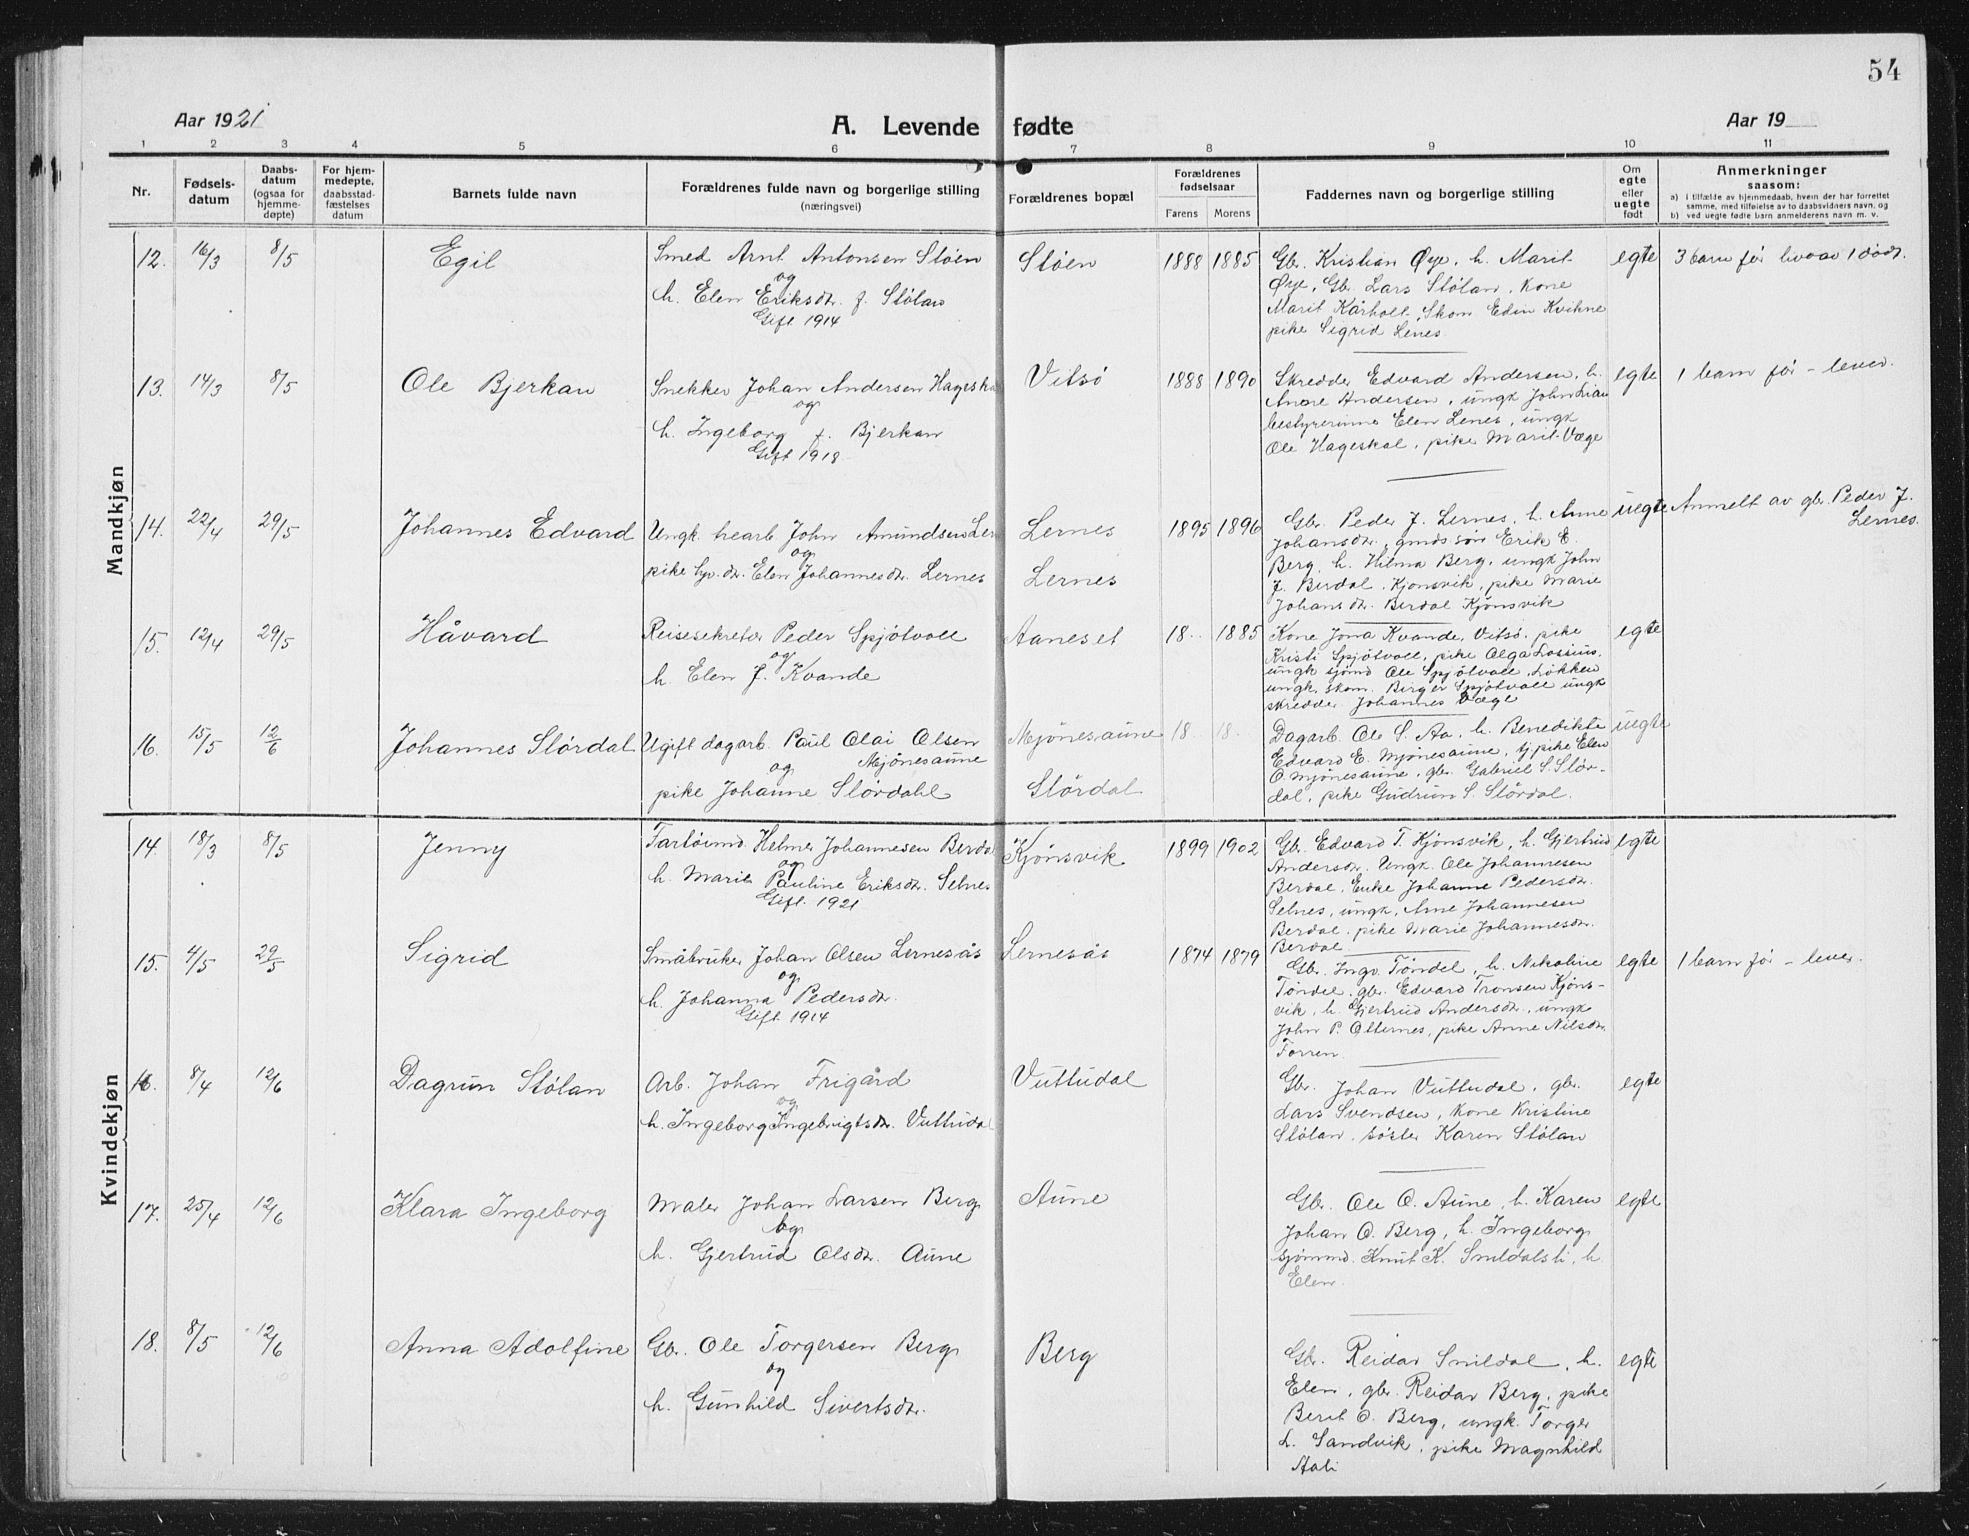 54
Aar 1921
A. Levende fødte
Aar 19
1 2 3 4 5 6 7 8 9 10 11
Nr.
Fødsels-
datum
Daabs-
datum
(ogsaa for
hjemme-
døpte)
For hjem-
medøpte,
daabsstad-
fæstelses
datum
Barnets fulde navn
Forældrenes fulde navn og borgerlige stilling
(næringsvei)
Forældrenes bopæl
Forældrenes
fødselsaar
Farens Morens
Faddernes navn og borgerlige stilling
Om
egte
eller
uegte
født
Anmerkninger
saasom:
a) i tilfælde av hjemmedaab, hvem der har forrettet
samme, med tilføielse av to daabsvidners navn, og
b) ved uegte fødte barn anmelderens navn m. v.
Mandkjøn
12. 16/3 8/5 Egil
Smed Arnt Antonsen Støen
og
h. Elen Eriksdr. f. Stølan
Gift 1914
Støen 1888 1885
Gbr. Kristian Øye, h. Marit
Øye, Gbr. Lars Stølan, Kone
Marit Kårholt, Skom. Edin Kvikne
pike Sigrid Lenes.
egte 3 barn før hvorav 1 død.
13. 14/3 8/5 Ole Bjerkan
Snekker Johan Andersen Hageska
og
h. Ingeborg f. Bjerkan
Gift 1918
Vitsø 1888 1890
Skredder Edvard Andersen, h.
Anne Andersen, ungk. John Lian
bestyrerinne Elen Lenes, ungk.
Ole Hageskal, pike Marit Væge
egte 1 barn før - lever.
14. 22/4 29/5 Johannes Edvard
Ungk. hearb. John Amundsen Ler
og
pike hjv. dr. Elen Johannesdr. Lernes
Lernes
Lernes
1895 1896
Gbr. Peder J. Lernes, h. Anne
Johansdr., gmds søn Erik E.
Berg, h. Hilma Berg, ungk. John
J. Berdal, Kjønsvik, pike Marie
Johansdr. Berdal Kjønsvik
uegte Anmelt av gbr. Peder J.
Lernes.
15. 12/4 29/5 Håvard
Reisesekretær Peder Spjøtvoll
og
h. Elen J. Kvande
Aaneset 18.. 1885
Kone Jona Kvande, Vitsø, pike
Kristi Spjøtvoll, pike Olga Lossius,
ungk. sjømd. Ole Spjøtvoll, Løkken
ungk. skom. Birger Spjøtvoll ungk
skredder Johannes Væge
egte
16. 15/5 12/6 Johannes Størdal
Ugift dagarb. Paul Olai Olsen
Mjønesaune
og
pike Johanne Størdahl
Mjønesaune
Størdal
18. 18.
Dagarb. Ole S. Aa, h. Benedikte
Edvard E. Mjønesaune, tj. pike Elen
O. Mjønesaune, gbr. Gabriel S. Stør-
dal, pike Gudrun S. Størdal.
uegte
Kvindekjøn
14. 18/3 8/5 Jenny
Fartøimd. Helmer Johannesen Berda
og
h. Marie Pauline Eriksdr. Selnes
Gift 1921
Kjønsvik 1899 1902
Gbr. Edvard T. Kjønsvik, h. Gjertrud
Andersdr. Ungk. Ole Johannesen
Berdal, Enke Johanne Pedersdr.
Selnes, ungk. Arne Johannesen
Berdal, pike Marie Johannesdr.
Berdal
egte
15. 4/5 29/5 Sigrid
Småbruker Johan Olsen Lernesås
og
h. Johanna Pedersdr.
Gift 1914
Lernesås 1874 1879
Gbr. Ingv. Tøndel, h. Nikoline
Tøndel, gbr. Edvard Tronsen Kjøns-
vik, h. Gjertrud Andersdr., ungk.
John P. Olternes, pike Anne Nilsdr.
Torren.
egte 1 barn før - lever.
16. 8/4 12/6 Dagrun Stølan
Arb. Johan Frigård
og
h. Ingeborg Ingebrigtsdr. Vuttudal
Vuttudal
Gbr. Johan Vuttudal, gbr.
Lars Svendsen, Kone Kristine
Stølan, søster Karen Stølan
egte
17. 25/4 12/6 Klara Ingeborg
Maler Johan Larsen Berg
og
h. Gjertrud Olsdr. Aune
Aune
Gbr. Ole O. Aune, h. Karen
Johan O. Berg, h. Ingeborg
sjømmd. Knut K. Snildalsli, h.
Elen.
egte
18. 8/5 12/6 Anna Adolfine
Gbr. Ole Torgersen Berg
og
h. Gunhild Sivertsdr.
Berg
Gbr. Reidar Snildal, h.
Elen, gbr. Reidar Berg, pike
Berit O. Berg, ungk. Torger
L. Sandvik, pike Magnhild
Aali
egte